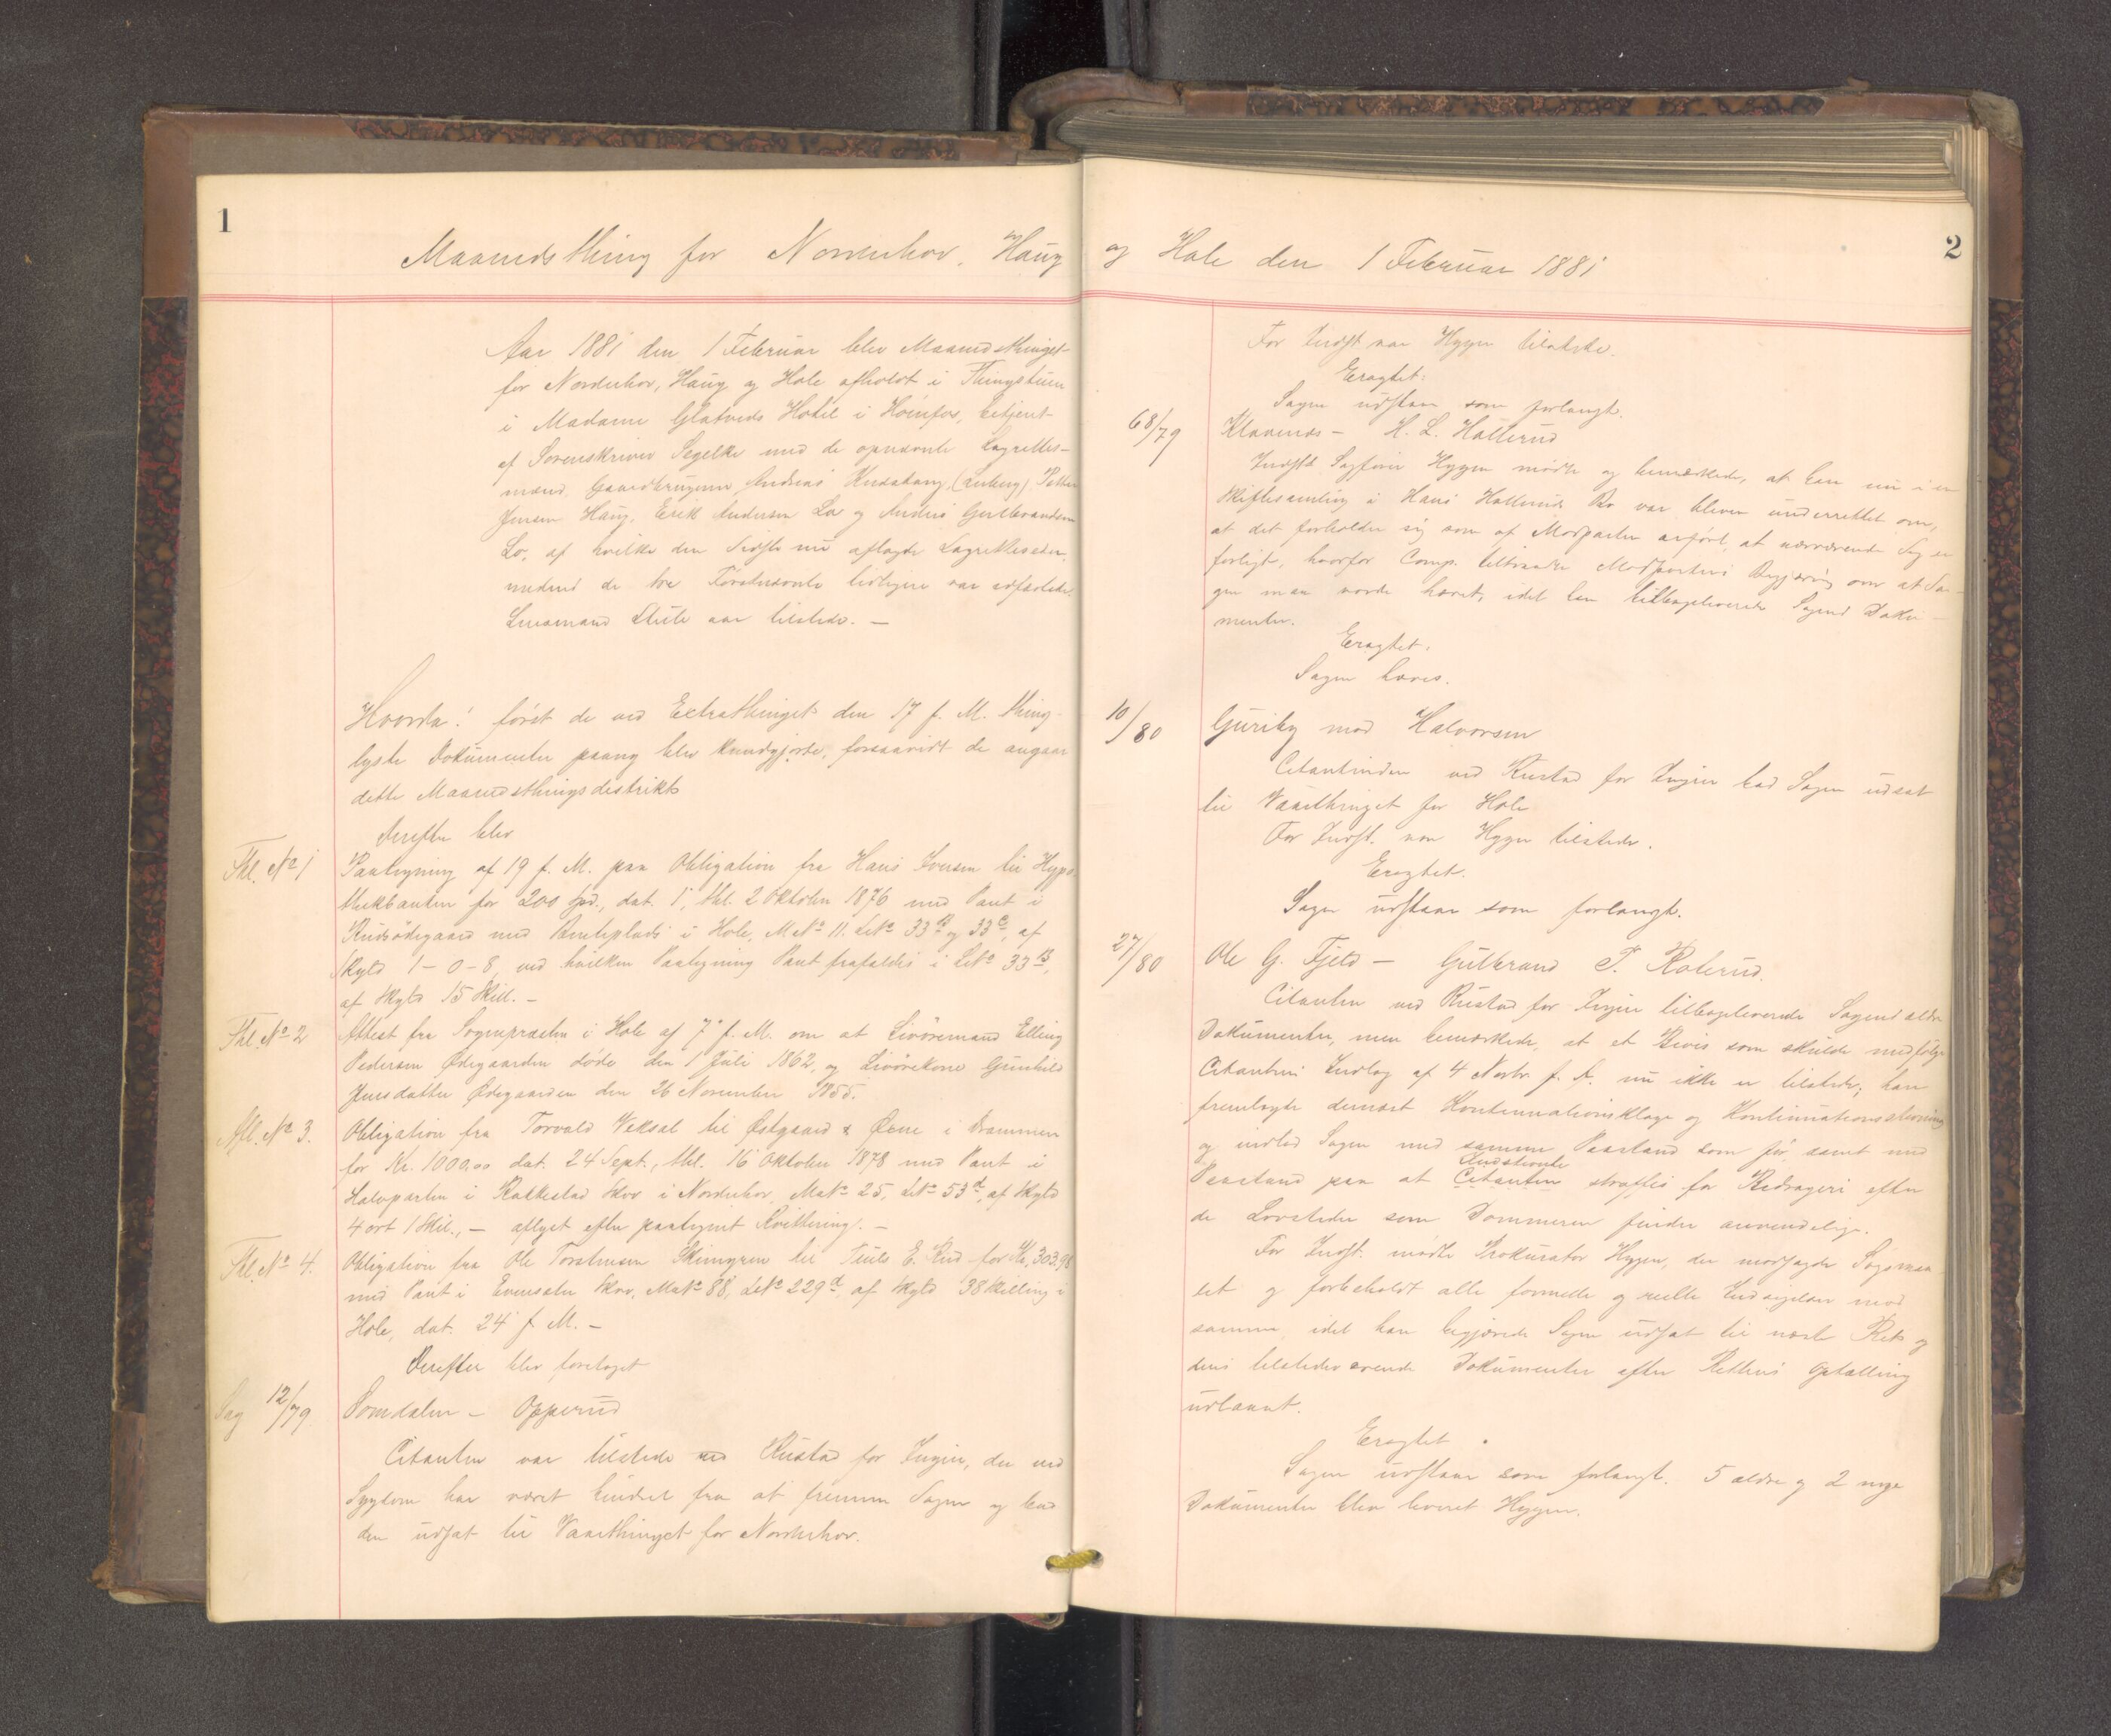 1
Maanedsthing for Norderhov, Haug
Aar 1881 den 1 Februar blev Maanedsthinget
for Norderhov, Haug og Hole afholdt i Thingstuen
i Madame Glatveds Hotel i Hønefos, betjent
af Sorenskriver Segelke med de opnævnte Lagrettes-
mænd Gaardbrugerne Andreas Petter
Jensen Haug, Erik Andersen Lo og Anders Gulbrandsen
Lo, af hvilke den Sidste nu aflagde Lagretteseden,
medens de tre Førstnævnte tidligere var edfæstede.
Lensmand var tilstede. —
Hvorda: først de ved Extrathinget den 17 f. M. thing-
lyste Dokumenter paany blev kundgjorte, forsaavidt de angaar
dette Maanedsthingsdistrikt
Derefter blev
Thl. No 1
Paategning af 19 f. M. paa Obligation fra Hans Iversen til Hypo-
thekbanken for 200 Spd., dat. 1, thl. 2 Oktober 1876 med Pant i
Rudsødegaard med i Hole, M No 11. LNo 33 b og 33 c, af
Skyld 1-0-8, ved hvilken Paategning Pant frafaldes i LNo 33 b,
af Skyld 15 Skill. —
Thl. No 2
Attest fra Sognepræsten i Hole af 7 f. M. om at Livøremand Elling
Pedersen Ødegaarden døde den 1 Juli 1862, og Livørekone Gunhild
Jensdatter Ødegaarden den 26 November 1855.
Afl. No 3.
Obligation fra Torvald Veksal til Østgaard & Øxne i Drammen
for Kr. 1000.00 dat. 24 Sept., thl. 16 Oktober 1878 med Pant i
Halvparten i Rakkestad Skov i Norderhov, MNo 25, LNo 53 d, af Skyld
4 ort 1 Skil., — aflyst efter paategnet Kvittering. —
Thl. No 4.
Obligation fra Ole Torstensen til Truls E. Rud for Kr. 303.98
med Pant i Skov, MNo 88, LNo 229 d, af Skyld 38 Skilling i
Hole, dat. 24 f. M. —
Derefter blev foretaget
Sag 12/79
Somdalen — Opperud
Citanten var tilstede ved Rustad for Ingier, der ved
Sygdom har været hindret fra at fremme Sagen og bad
den udsat til Vaarthinget for Norderhov.
2
og Hole den 1 Februar 1881
For Indst var Hygen tilstede.
Eragtet:
Sagen udstaar som forlangt.
68/79
Klavenæs — H. L. Hallerud
Indst Sagfører Hygen mødte og bemærkede, at han nu i en
Skiftesamling i Hans Halleruds Bo var bleven underrettet om,
at det forholder sig som af Modparten anført, at nærværende Sag er
forligt, hvorfor Comp. tiltraadte Modpartens Begjæring om at Sa-
gen maa vorde hævet, idet han tilbageleverede Sagens Doku-
menter.
Eragtet:
Sagen hæves.
10/80
Guriby mod Halvorsen
Citantinden ved Rustad for Ingier bad Sagen udsat
til Vaarthinget for Hole
For Indst. var Hygen tilstede.
Eragtet.
Sagen udstaar som forlangt.
27/80
Ole G. Fjeld — Gulbrand P. Rolerud.
Citanten ved Rustad for Ingier tilbageleverede Sagens ældre
Dokumenter, men bemærkede, at et Bevis som skulde medfølge
Citantens Indlæg af 4 Novbr. f. A. nu ikke er tilstede; han
fremlagde dernæst Kontinuationsklage og Kontinuationsstevning
og indlod Sagen med samme Paastand som før, samt med
Indstevnte
Paastand paa at Citanten straffes for Bedrageri efter
de Lovsteder som Dommeren finder anvendelige.
For Indst. mødte Prokurator Hygen, der modsagde Søgsmaa-
let og forbeholdt alle formelle og reelle Indsigelser mod
samme, idet han begjærede Sagen udsat til næste Ret og
dens tilstedeværende Dokumenter efter Rettens Optælling
udlaant.
Eragtet.
Sagen udstaar som forlangt. 5 ældre og 2 nye
Dokumenter blev leveret Hygen.